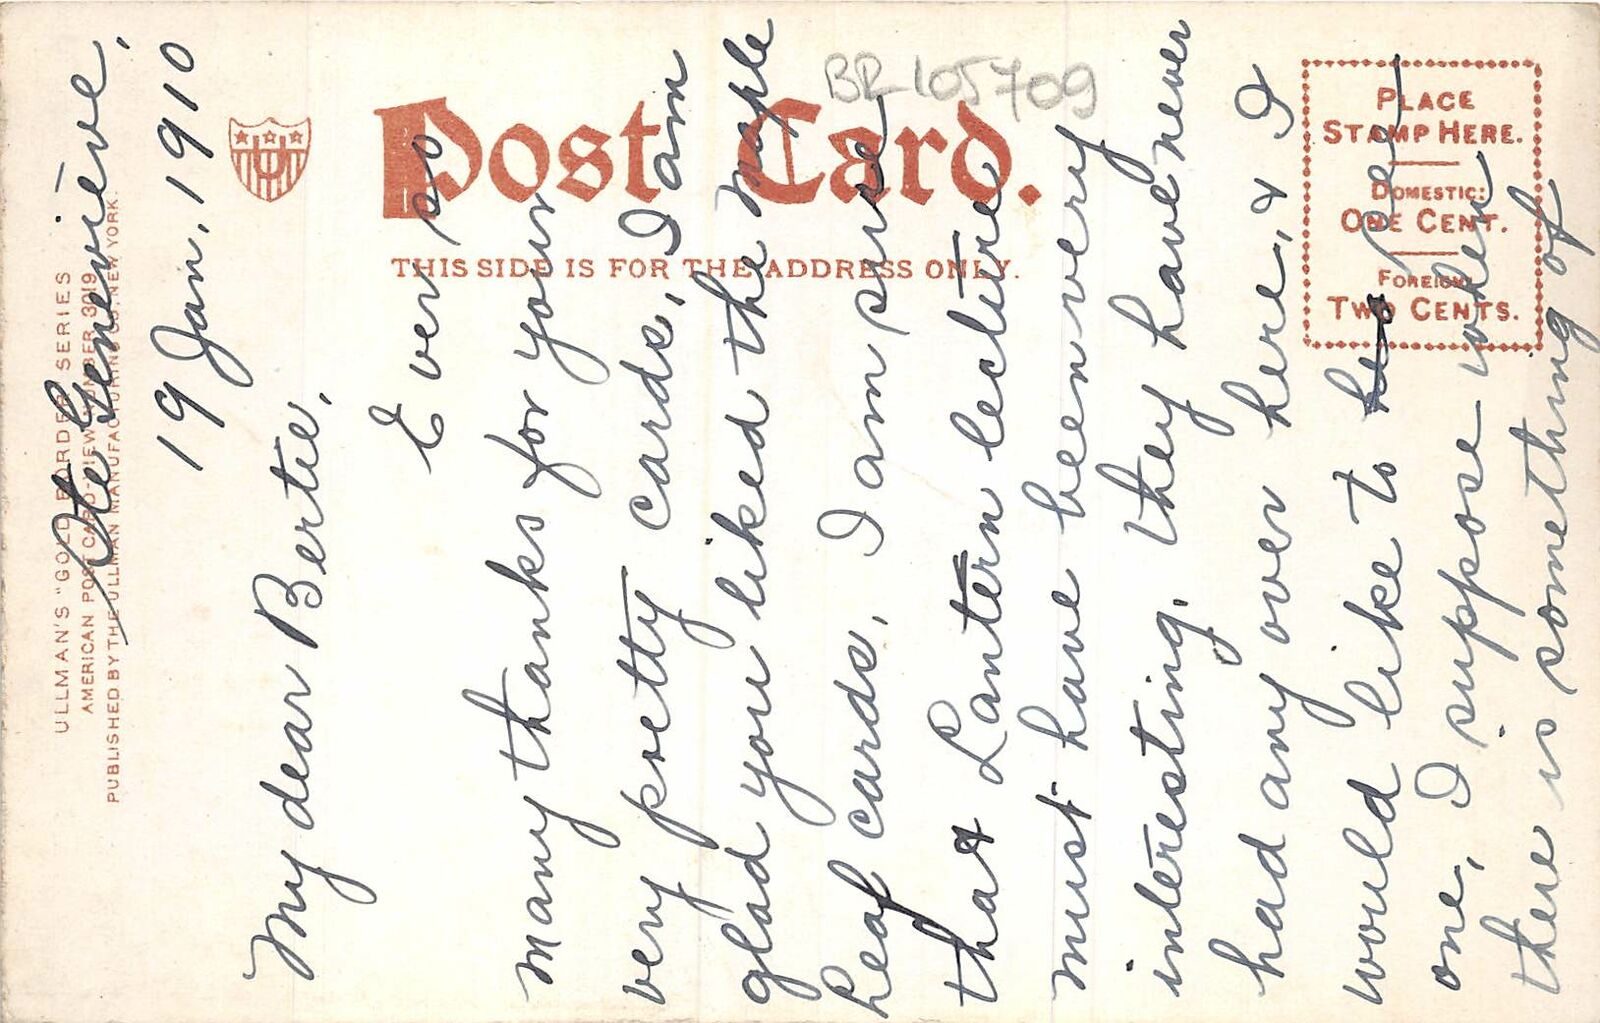 ULLMAN'S "GOLD BORDER" SERIES
AMERICAN POST CARD—VIEW NUMBER 3019
PUBLISHED BY THE ULLMAN MANUFACTURING CO. NEW YORK.
U
Post Card.
THIS SIDE IS FOR THE ADDRESS ONLY.
BR 105709
PLACE
STAMP HERE.
DOMESTIC:
ONE CENT.
FOREIGN
TWO CENTS.
Ste Geneviève,
19 Jan, 1910
My dear Bertie,
Ever so
many thanks for your
very pretty cards, I am
glad you liked the maple
leaf cards, I am sure
that Lantern lecture
must have been very
interesting, they have never
had any over here, & I
would like to see
one, I suppose when
there is something of